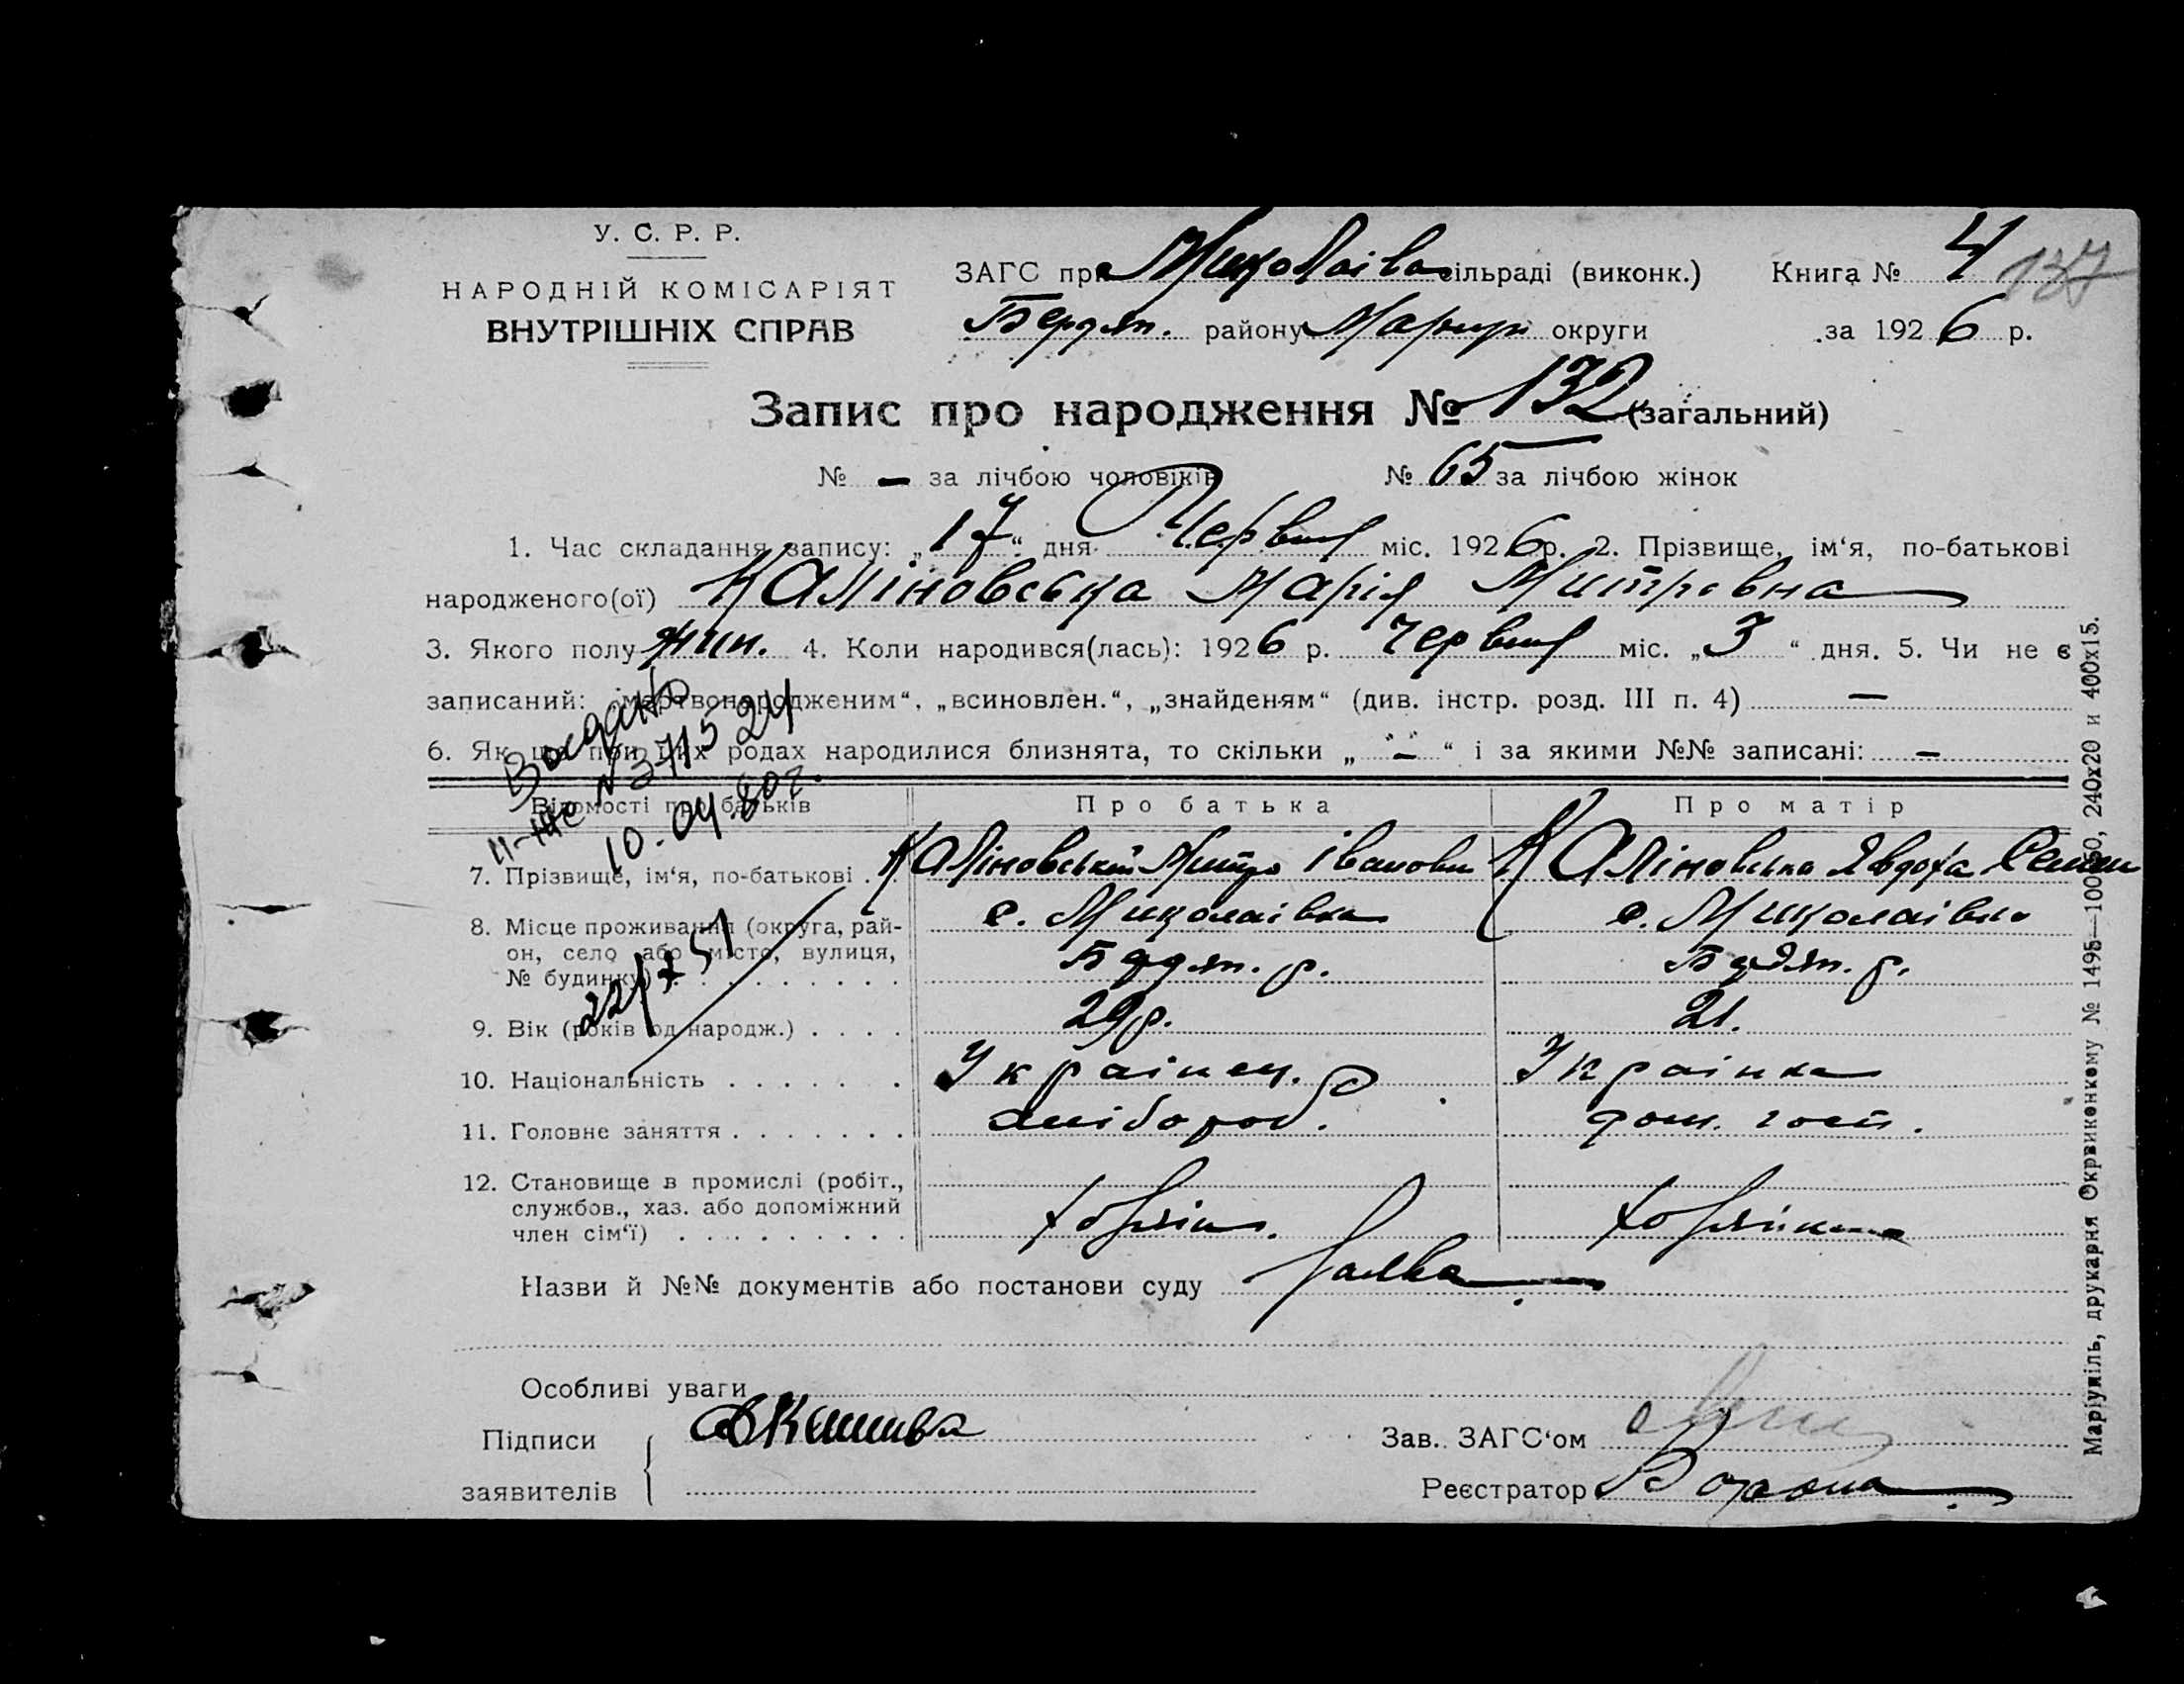 У. С. Р. Р.
НАРОДНІЙ КОМІСАРІЯТ
ВНУТРІШНІХ СПРАВ
ЗАГС при Миколаівс сільраді (виконк.) Книга № 4 137
Бердян. району Маріуп округи за 1926 р.
Запис про народження № 132 (загальний)
№ — за лічбою чоловіків № 65 за лічбою жінок
1. Час складання запису: „17“ дня Червня міс. 1926 р. 2. Прізвище, ім‘я, по-батькові
народженого(ої) Каліновська Марія Митровна
3. Якого полу жін. 4. Коли народився(лась): 1926 р. Червня міс. „3“ дня. 5. Чи не є
записаний: „мертвонародженим“, „всиновлен.“, „знайденям“ (див. інстр. розд. III п. 4) —
6. Як що при цих родах народилися близнята, то скільки „—“ і за якими №№ записані: —
№ 371524
10.04.80г.
22/X 51
Відомості про батьків Про батька Про матір
7. Прізвище, ім‘я, по-батькові . . Каліновський Митро Іванович Каліновська Явдоха Семен
8. Місце проживання (округа, рай-
он, село або місто, вулиця,
№ будинку) . . . . . . . . . с. Миколаівка с. Миколаівка
Бердян. р. Бердян. р.
9. Вік (років од народж.) . . . . 29 р. 21.
10. Національність . . . . . . . Украінец. Украінка
11. Головне заняття . . . . . . . хлібороб. дом. госп.
12. Становище в промислі (робіт.,
службов., хаз. або допоміжний
член сім‘ї) . . . . . . . . . хозяін. хозяйка
Назви й №№ документів або постанови суду Заява
Особливі уваги
Підписи
заявителів
Зав. ЗАГС‘ом
Реєстратор Ворона
Маріупіль, друкарня Окрвиконкому № 1495—10050, 240х20 и 400х15.